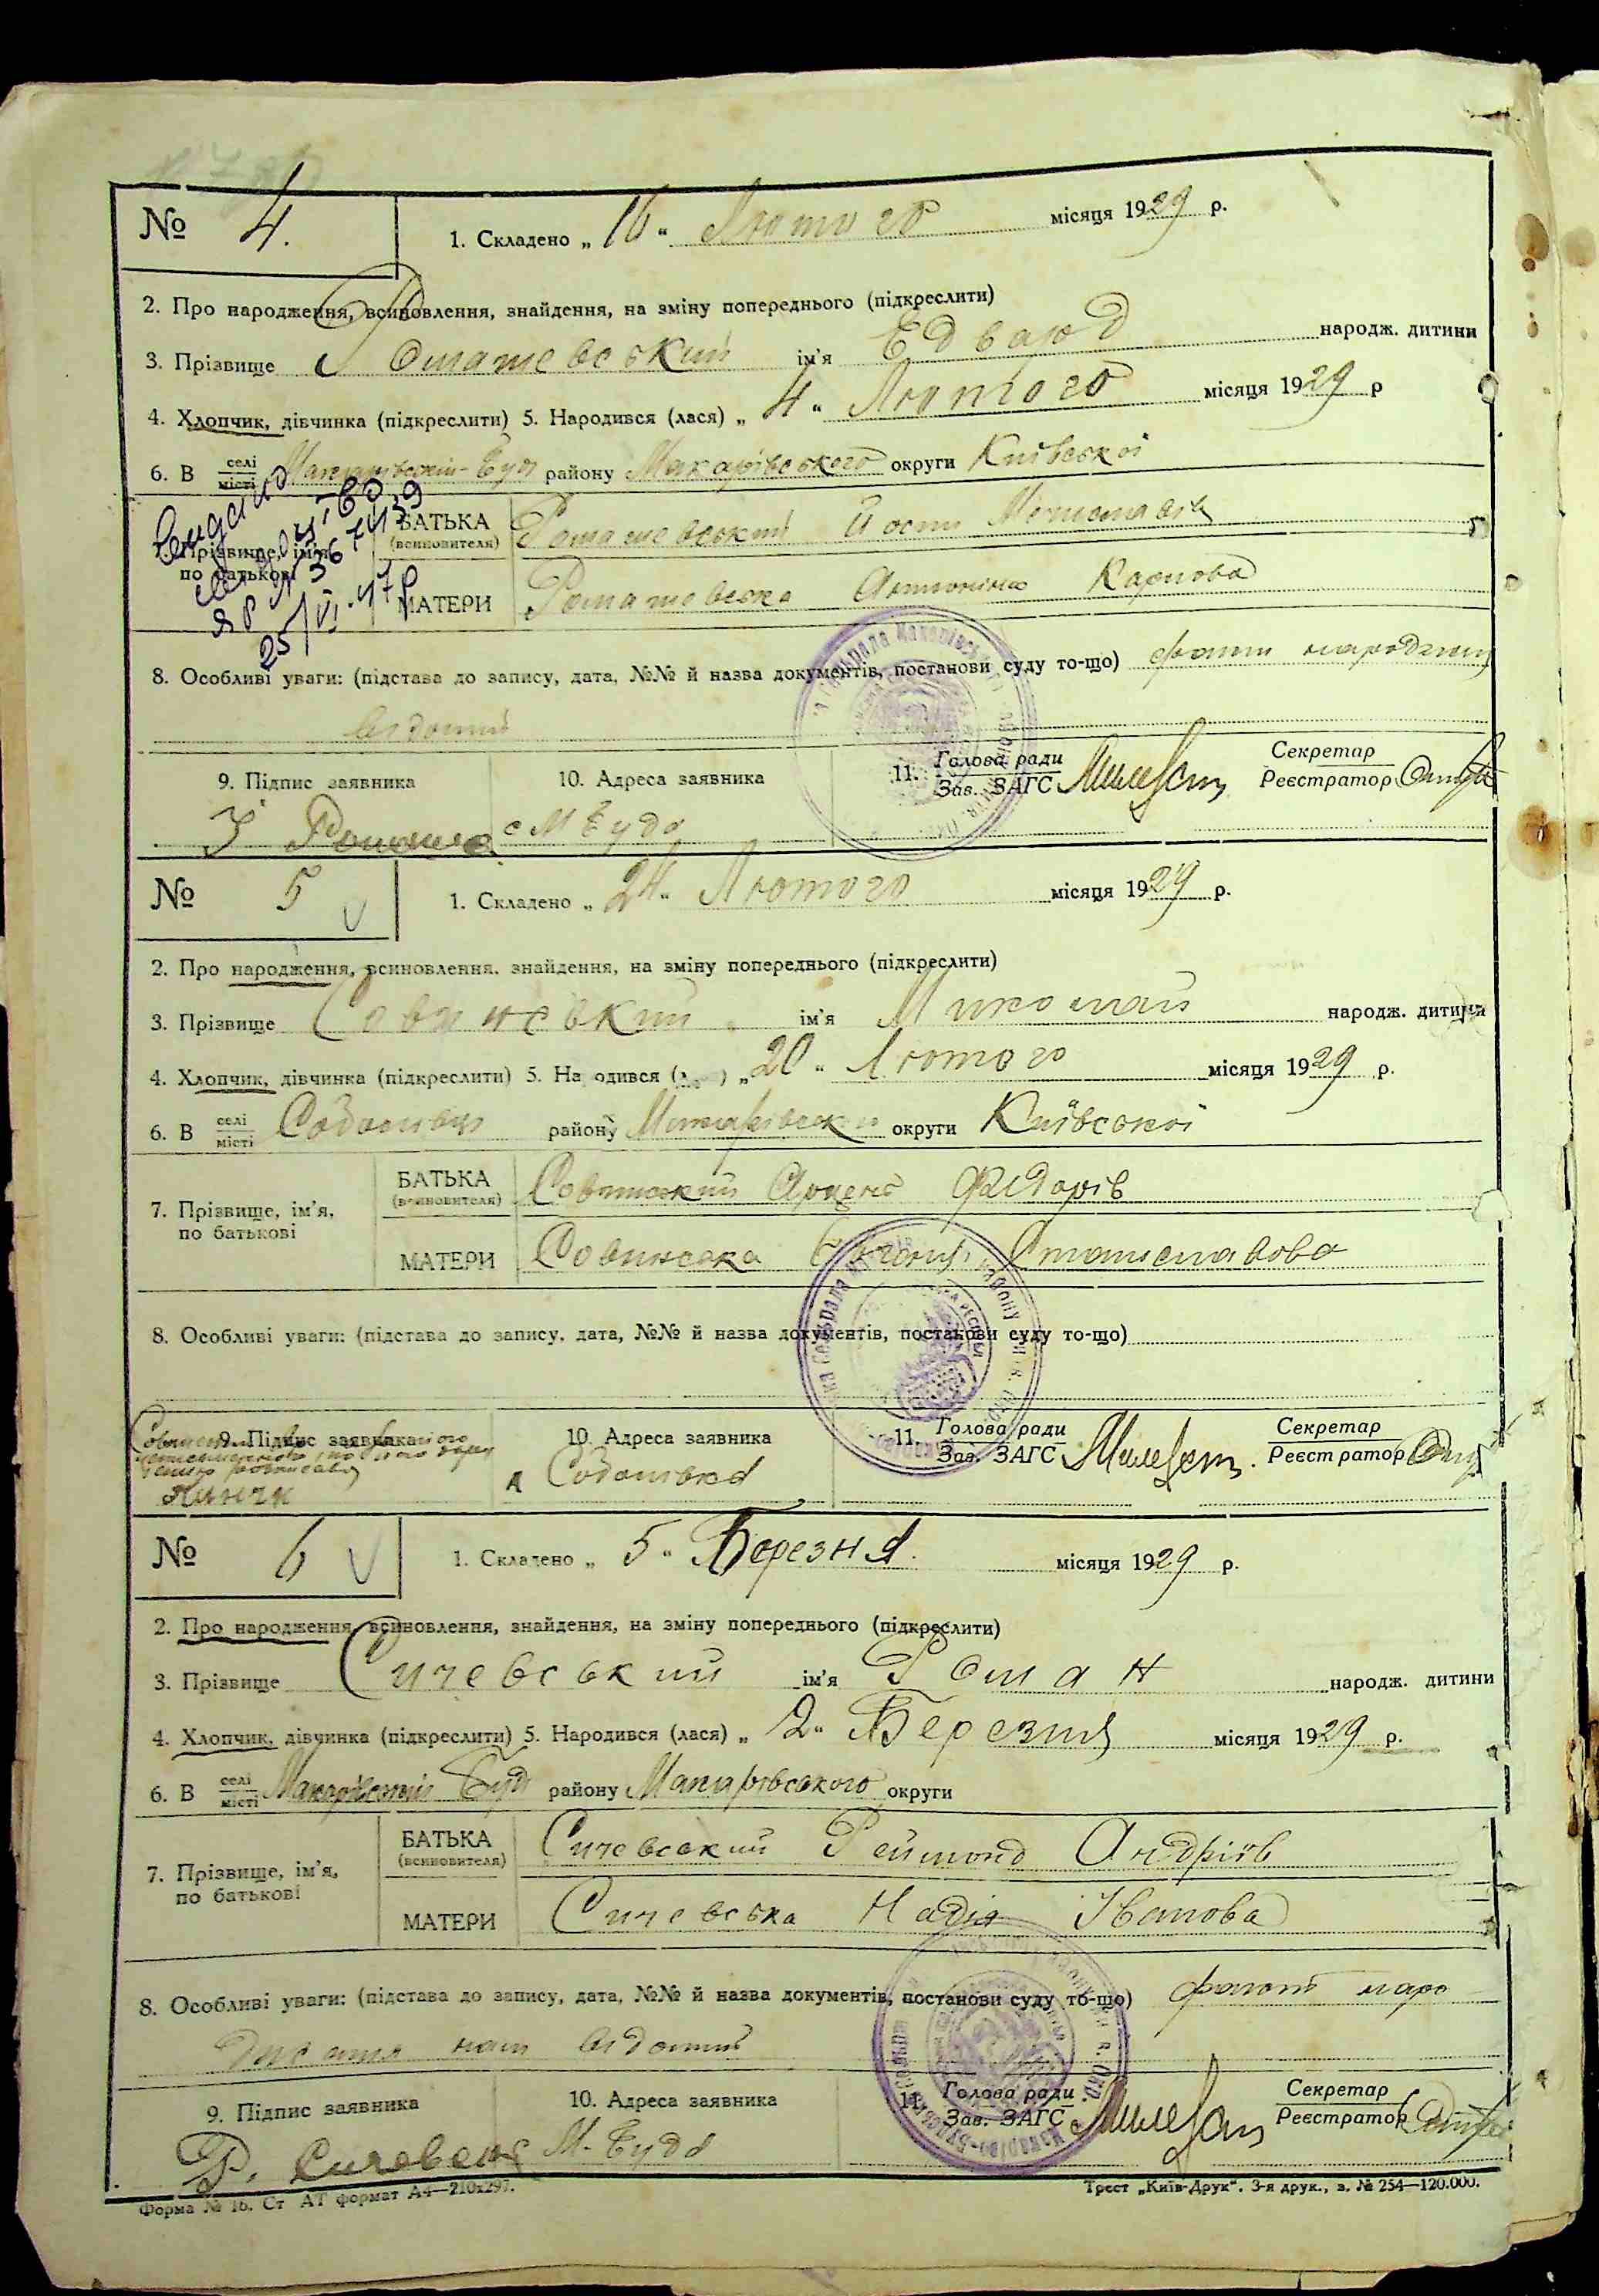 № 4. 1. Складено „ 16 “ Лютого місяця 1929 р.
2. Про народження, всиновлення, знайдення, на зміну попереднього (підкреслити)
3. Прізвище Роташевський ім'я Едвард народж. дитини
4. Хлопчик, дівчинка (підкреслити) 5. Народився (лася) „ 4 “ Лютого місяця 1929 р
6. В селі місті Макарівській-Буді району Макарівського округи Київської
Прізвище, ім'я по батькові
БАТЬКА (всиновителя) Роташевський
25/VI-47р
МАТЕРИ Роташевська Антоніна Карлова
8. Особливі уваги: (підстава до запису, дата, №№ й назва документів, постанови суду то-що) факт народжен
відомий
9. Підпис заявника 10. Адреса заявника 11. Голова ради Зав. ЗАГС Секретар Реєстратор
с М Буда
№ 5 1. Складено „ 24 “ Лютого місяця 1929 р.
2. Про народження, всиновлення, знайдення, на зміну попереднього (підкреслити)
3. Прізвище Совинський ім'я Миколай народж. дитини
4. Хлопчик, дівчинка (підкреслити) 5. Народився „ 20 “ Лютого місяця 1929 р.
6. В селі місті району Макарівськ округи Київської
7. Прізвище, ім'я, по батькові
БАТЬКА (всиновителя) Совинський Федорів
МАТЕРИ Совинська Станиславова
8. Особливі уваги: (підстава до запису, дата, №№ й назва документів, постанови суду то-що)
9. Підпис заявника 10. Адреса заявника 11. Голова ради Зав. ЗАГС Секретар Реєстратор
№ 6 1. Складено „ 5 “ Березня місяця 1929 р.
2. Про народження, всиновлення, знайдення, на зміну попереднього (підкреслити)
3. Прізвище Сичевський ім'я Роман народж. дитини
4. Хлопчик, дівчинка (підкреслити) 5. Народився (лася) „ 2 “ Березня місяця 1929 р.
6. В селі місті Макарівській Буді району Макарівського округи
7. Прізвище, ім'я, по батькові
БАТЬКА (всиновителя) Сичевський Реймонд Андріїв
МАТЕРИ Сичевська Надія Іванова
8. Особливі уваги: (підстава до запису, дата, №№ й назва документів, постанови суду то-що) факт наро
нам відомий
9. Підпис заявника 10. Адреса заявника 11. Голова ради Зав. ЗАГС Секретар Реєстратор
Р. Сичевськ М-Буда
Форма № 16. Ст АТ формат А4—210х297. Трест „Київ-Друк“. 3-я друк., з. № 254—120.000.